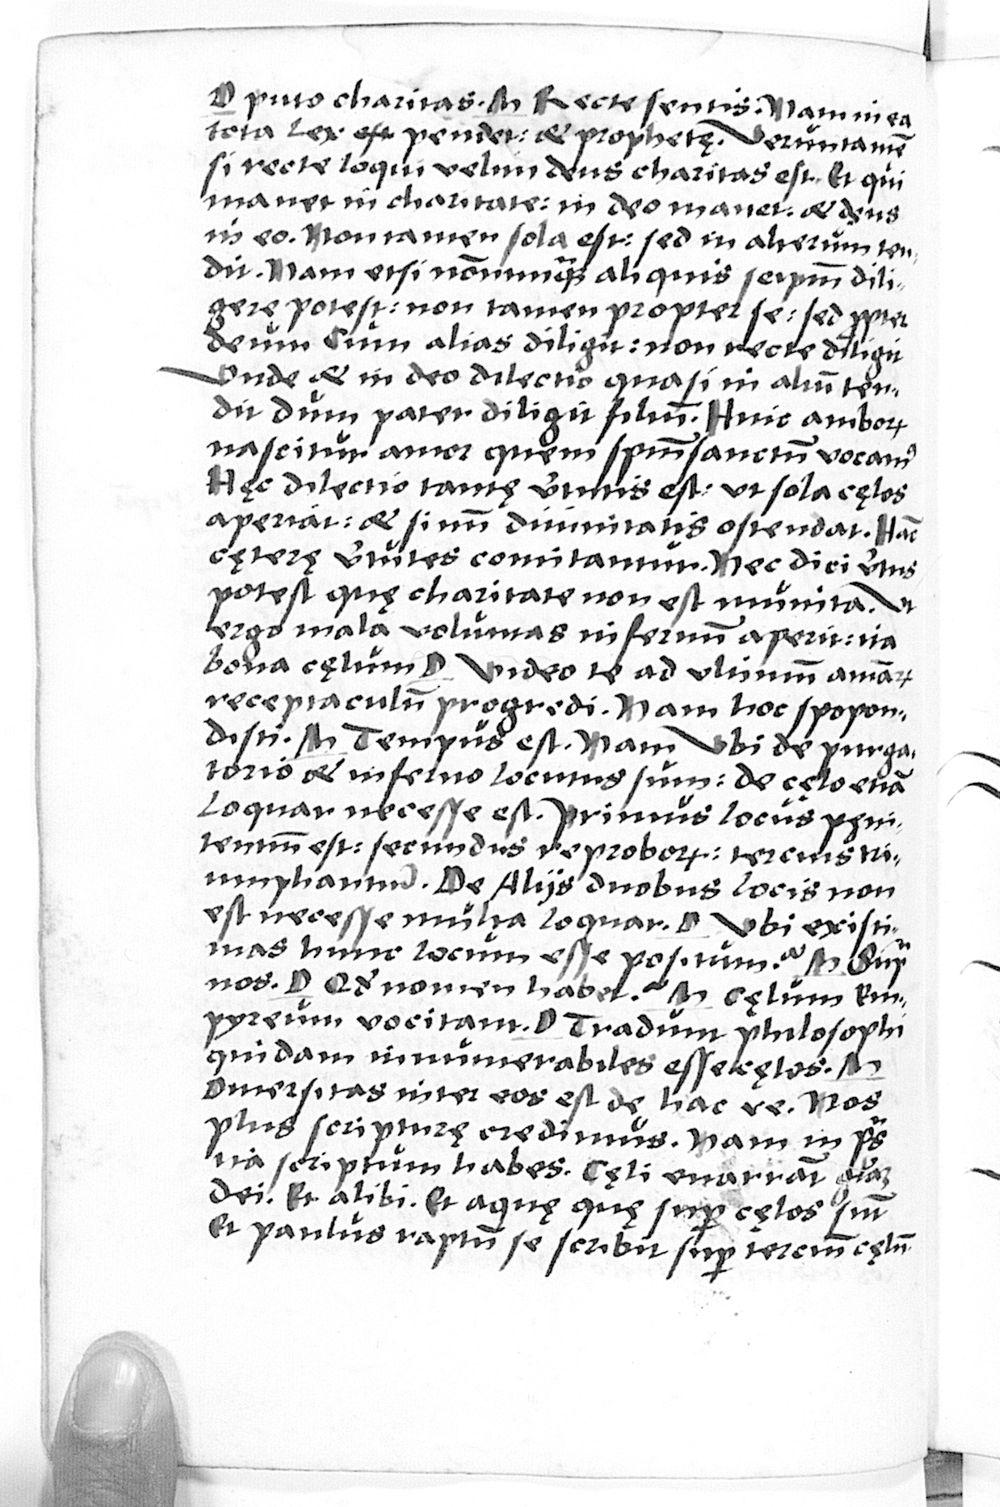 D puto charitas. M Recte sentis. Nam in ea
tota lex est pendet: & prophetę. Veruntamē
si recte loqui velim deus charitas est. Et qui
manet in charitate: in deo manet: & deus
in eo. Non tamen sola est: sed in alterum ten-
dit. Nam etsi nōnunq̃ aliquis seip̄m dili-
gere potest: non tamen propter se: sed ꝓpter
deum Cum alias diligit: non recte diligit
Vnde & in deo dilectio quasi in aliū ten-
dit dum pater diligit filiū. Hinc amboꝝ
nascitur amor quem sp̄m sanctū vocamꝰ
Hęc dilectio tantę v̄tutis est: vt sola cęlos
aperiat: & sinū diuinitatis ostendat. Hāc
cęterę v̄tutes comitantur. Nec dici v̄tus
potest quę charitate non est munita. Vt
ergo mala voluntas infernū aperit: ita
bona cęlum D Video te ad vltimū animāꝝ
receptaculū progredi. Nam hoc spopon-
disti. M Tempus est. Nam Vbi de purga-
torio & inferno locutus sum: de cęlo etiā
loquar necesse est. Primus locus pęni-
tentiū est: secundus reproboꝝ: tercius tri-
umphantiū. De Alijs duobus locis non
est necesse multa loquar. D Vbi existi-
mas hunc locum esse positum? M Sup̄
nos. D Qd̄ nomen habet? M Cęlum Em-
pyreum vocitant. D Tradunt philosophi
quidam innumerabiles esse cęlos. M
Diuersitas inter eos est de hac re. Nos
plus scripturę credimus. Nam in p̄s
ita scriptum habes. Cęli enarrāt głaꝫ
dei. Et alibi. Et aquę quę sup̄ cęlos sūt
Et paulus raptū se scribit sup̄ terciū cęlū